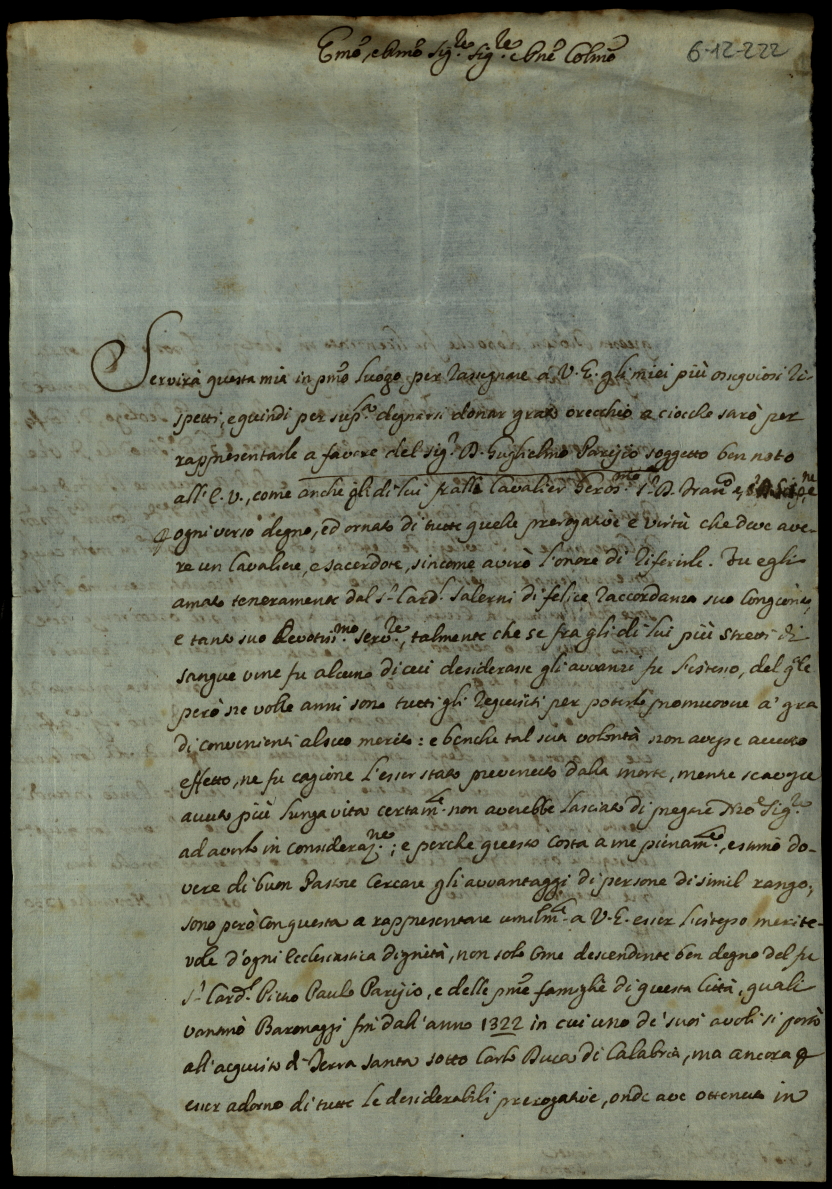 Emõ, e Rmõ Sig.re Sig.re e Pne Colmõ
6-12-222
Servirà questa mia in pmõ luogo per rassegnare à V. E. gli miei più ossequiosi ri-
spetti, e quindi per sup.la degnarsi donar grato orecchio a ciocche sarò per
rappresentarle a favore del Sig.r D. Guglielmo Parisio soggetto ben noto
all' E. V., come anche gli di lui fratelli Cavalier S.r D. Fran.co
ogni verso degno, ed ornato di tutte quelle prerogative e virtù che deve ave-
re un Cavaliere, e sacerdote, sincome averò l'onore di riferirle. Fu egli
amato teneramente dal S.r Card.l Salerni di felice raccordanza suo Congionto,
e tanto suo Devotiss.mo Serv.re, talmente che se fra gli di lui più stretti di
sangue vene fu alcuno di cui desiderasse gli avvanzi fu l'istesso, del q.le
però ne volle anni sono tutti gli requisiti per poterlo promuovere a' gra
di convenienti al suo merito: e benche tal sua volontà non avesse avuto
effetto, ne fu cagione l'esser stato prevenuto dalla morte, mentre se avesse
avuto più lunga vita certam.te non averebbe lasciato di pregare Nro Sig.re
ad averlo in considera.ne; e perche questo costa a me pienam.te, e stimo do-
vere di buon Pastore cercare gli avvantaggi di persone di simil rango,
sono però con questa a rappresentare umilm.te a V. E. esser l'istesso merite-
vole d'ogni Ecclesiastica dignità, non solo come descendente ben degno del fu
S.r Card.l Pietro Paulo Parisio, e delle pme famiglie di questa Città, quali
vantano Baronaggi fin dall'anno 1322 in cui uno de' suoi avoli si portò
all'acquisto di Terra Santa sotto Carlo Duca di Calabria, ma ancora p
esser adorno di tutte le desiderabili prerogative, onde ave ottenuto in